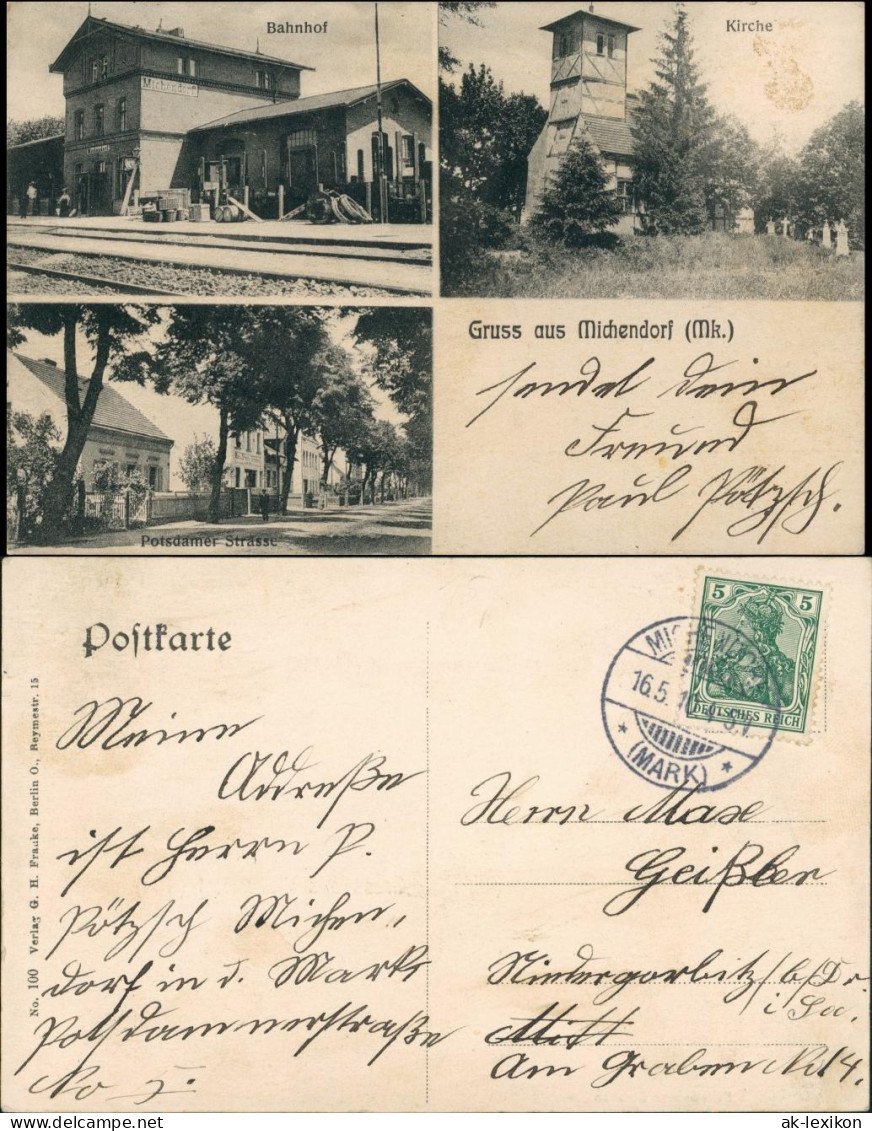 Bahnhof
Michendorf
Kirche
Potsdamer Strasse
Gruss aus Michendorf (Mk.)
sendet Dein
Freund
Paul Pötzsch.
Postkarte
No. 100 Verlag G. H. Franke, Berlin O., Reymestr. 15
Meine
Addreße
ist Herrn P.
Pötzsch Michen,
dorf in d. Mark
Potsdammerstraße
No 5.
5 5
DEUTSCHES REICH
16.5.
* (MARK) *
Herrn Maxe
Geißler
Niedergorbitz/b/Dr.
i Sa.
Am Graben No 14.
ak-lexikon